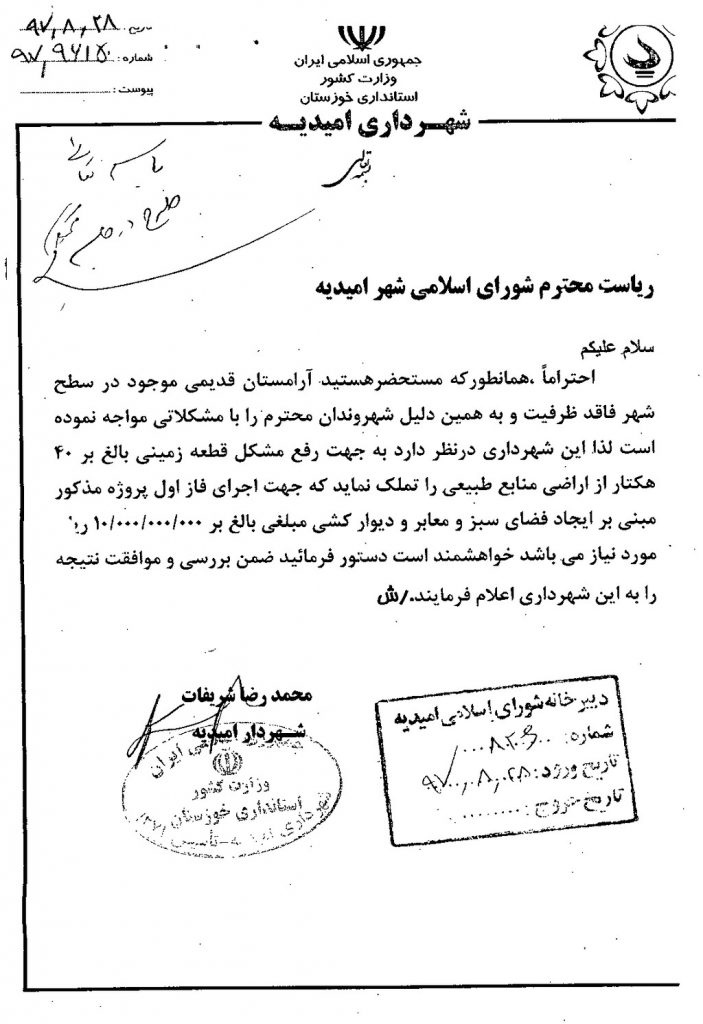 تاریخ : ۹۷,۸,۲۸
شماره : ۹۷,۹۶۱۵۰
پیوست :
جمهوری اسلامی ایران
وزارت کشور
استانداری خوزستان
شهرداری امیدیه
بسمه تعالی
ریاست محترم شورای اسلامی شهر امیدیه
سلام علیکم
احتراماً ،همانطورکه مستحضرهستید آرامستان قدیمی موجود در سطح
شهر فاقد ظرفیت و به همین دلیل شهروندان محترم را با مشکلاتی مواجه نموده
است لذا این شهرداری درنظر دارد به جهت رفع مشکل قطعه زمینی بالغ بر ۴۰
هکتار از اراضی منابع طبیعی را تملک نماید که جهت اجرای فاز اول پروژه مذکور
مبنی بر ایجاد فضای سبز و معابر و دیوار کشی مبلغی بالغ بر ۱۰/۰۰۰/۰۰۰/۰۰۰
مورد نیاز می باشد خواهشمند است دستور فرمائید ضمن بررسی و موافقت نتیجه
را به این شهرداری اعلام فرمایند./ش
محمد رضا شریفات
شهردار امیدیه
ایران
وزارت کشور
استانداری خوزستان
شهرداری
تأسیس
دبیرخانه شورای اسلامی امیدیه
شماره:
تاریخ ورود: ۹۷,۸,۲۸
تاریخ خروج: